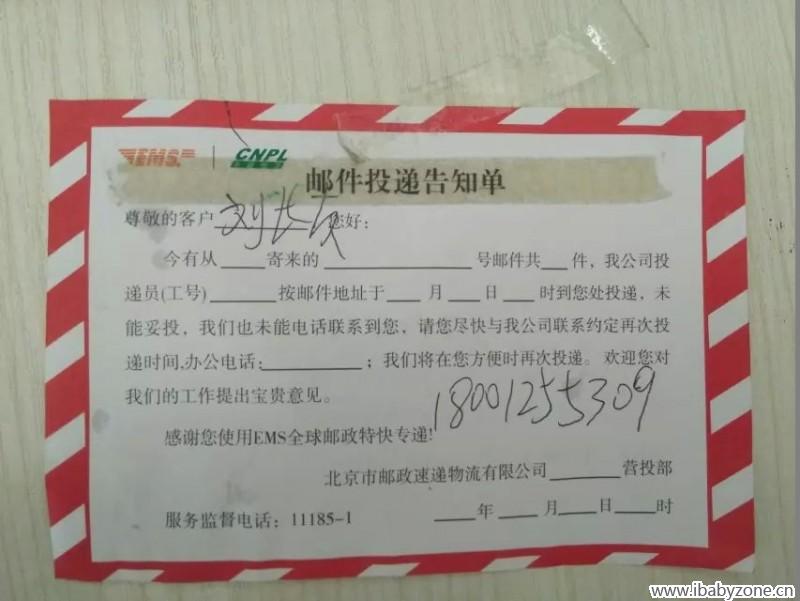 EMS CNPL
邮件投递告知单
尊敬的客户 刘长 您好：
今有从____寄来的____________号邮件共__件，我公司投
递员(工号)______按邮件地址于___月___日___时到您处投递，未
能妥投，我们也未能电话联系到您，请您尽快与我公司联系约定再次投
递时间,办公电话:_________；我们将在您方便时再次投递。欢迎您对
我们的工作提出宝贵意见。
18001255309
感谢您使用EMS全球邮政特快专递!
北京市邮政速递物流有限公司______营投部
服务监督电话：11185-1 ____年____月____日____时
www.ibabyzone.cn